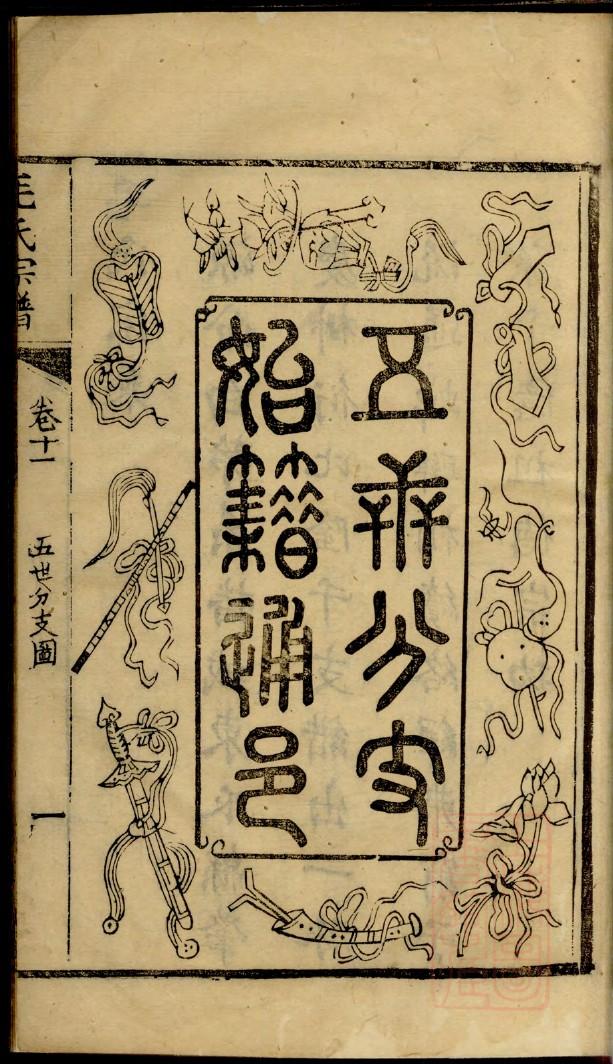 五世分支
始籍通邑
毛氏宗譜
卷十一
五世分支圖
一